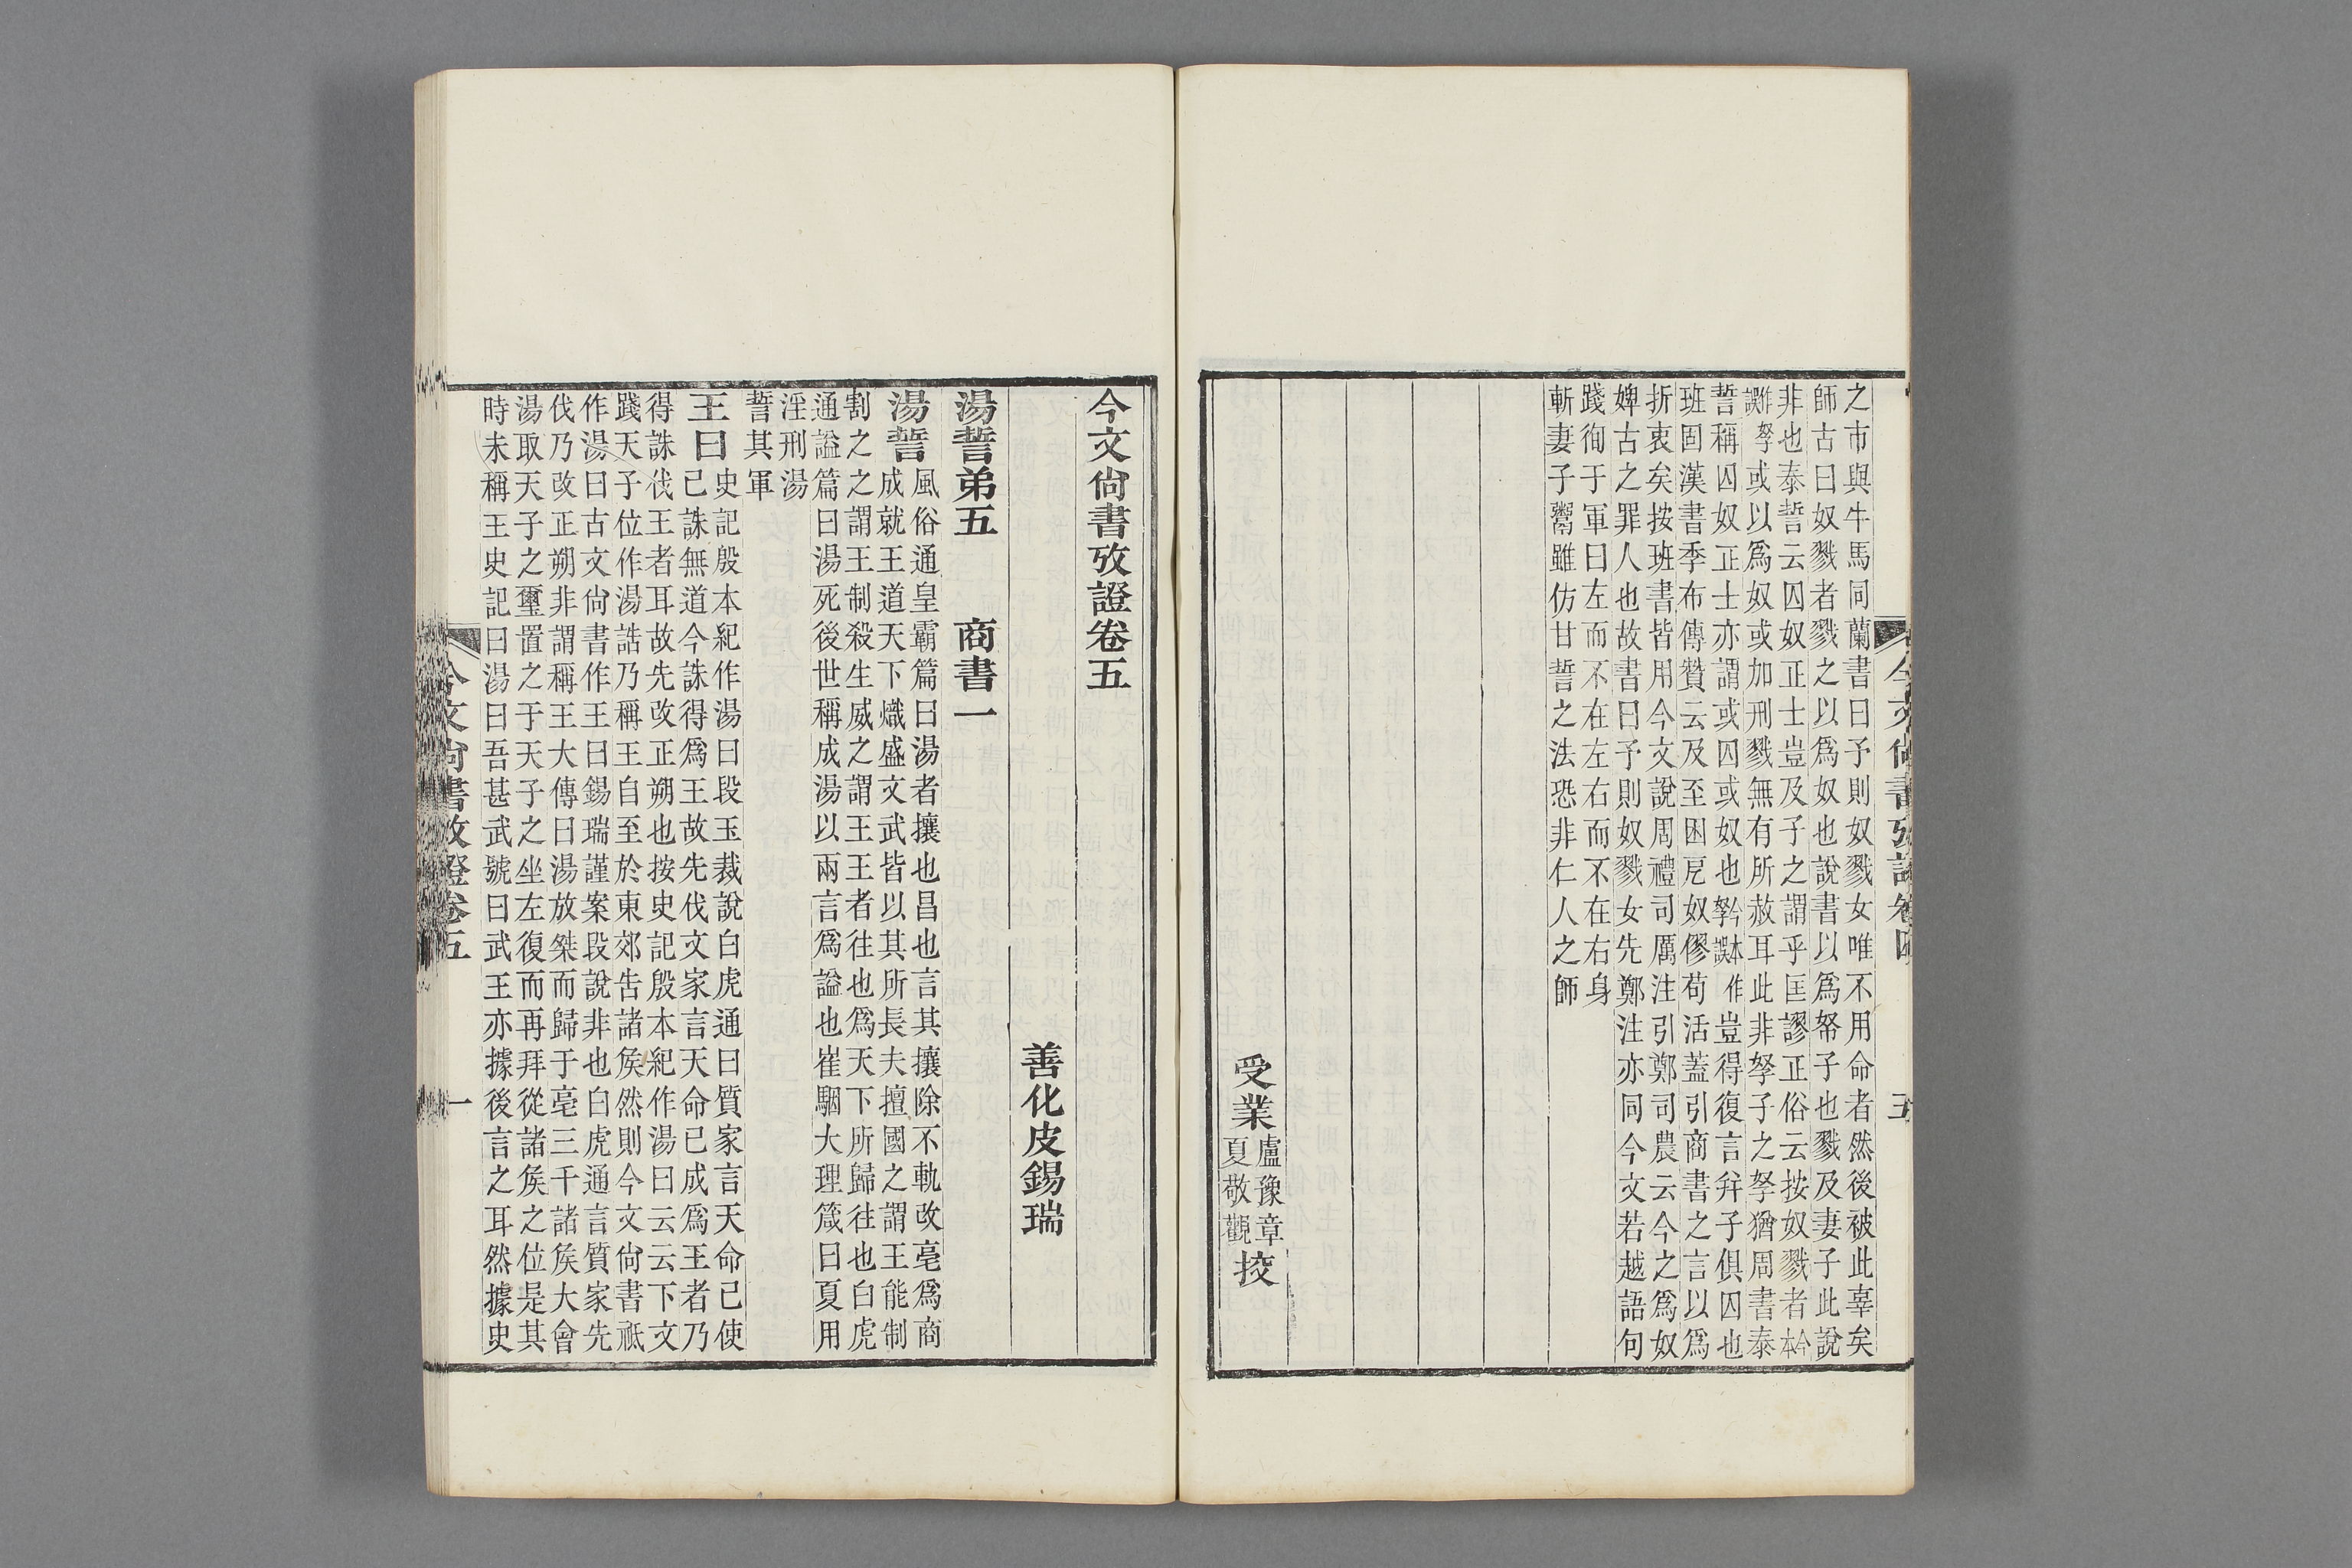 之市與牛馬同蘭書曰予則奴戮女唯不用命者然後被此辜矣
師古曰奴戮者戮之以爲奴也說書以爲帑子也戮及妻子此說
非也泰誓云囚奴正士豈及子之謂乎匡謬正俗云按奴戮者本
或以爲奴或加刑戮無有所赦耳此非孥子之孥猶周書泰
誓稱囚奴正士亦謂或囚或奴也豈得復言并子俱囚也
班固漢書季布傳贊云及至困戹奴僇苟活蓋引商書之言以爲
折衷矣按班書皆用今文說周禮司厲注引鄭司農云今之爲奴
婢古之罪人也故書曰予則奴戮女先鄭注亦同今文若越語句
踐徇于軍曰左而不在左右而不在右身
斬妻子鬻雖仿甘誓之法恐非仁人之師
受業
盧豫章
夏敬觀
挍
今文尙書攷證卷四
五
今文尙書攷證卷五
善化皮錫瑞
湯誓弟五 商書一
湯誓
風俗通皇霸篇曰湯者攘也昌也言其攘除不軌改亳爲商
成就王道天下熾盛文武皆以其所長夫擅國之謂王能制
割之之謂王制殺生威之謂王王者往也爲天下所歸往也白虎
通謚篇曰湯死後世稱成湯以兩言爲謚也崔駰大理箴曰夏用
淫刑湯
誓其軍
王曰
史記殷本紀作湯曰段玉裁說白虎通曰質家言天命已使
己誅無道今誅得爲王故先伐文家言天命已成爲王者乃
得誅伐王者耳故先改正朔也按史記殷本紀作湯曰云云下文
踐天子位作湯誥乃稱王自至於東郊告諸矦然則今文尙書祗
作湯曰古文尙書作王曰錫瑞謹案段說非也白虎通言質家先
伐乃改正朔非謂稱王大傳曰湯放桀而歸于亳三千諸矦大會
湯取天子之璽置之于天子之坐左復而再拜從諸矦之位是其
時未稱王史記曰湯曰吾甚武號曰武王亦據後言之耳然據史
今文尙書攷證卷五
一